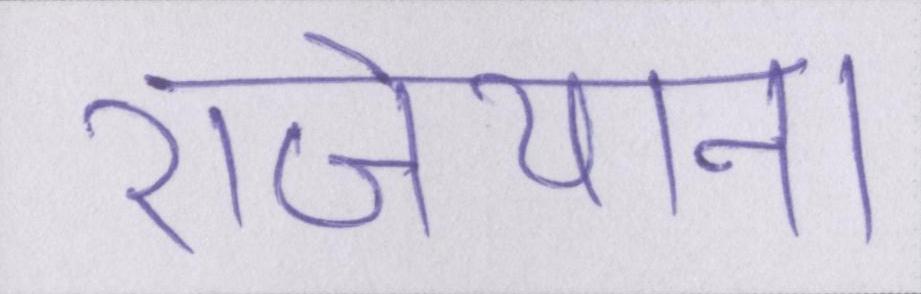 राजेयाना